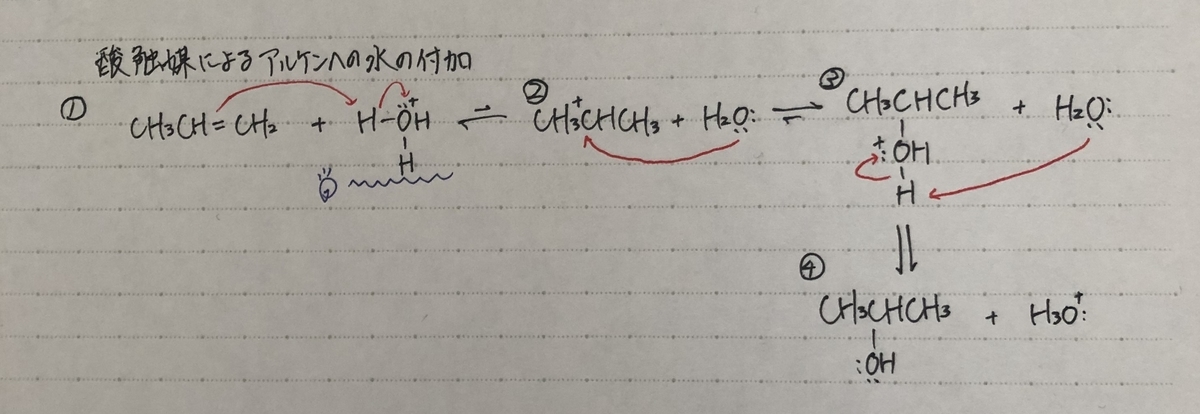 酸触媒によるアルケンへの水の付加
① CH₃CH=CH₂ + H-ÖH⁺ ⇌ ② CH₃C⁺HCH₃ + H₂O: ⇌ ③ CH₃CHCH₃ + H₂O:
H
⁺:OH
H
④ CH₃CHCH₃ + H₃O⁺:
:OH